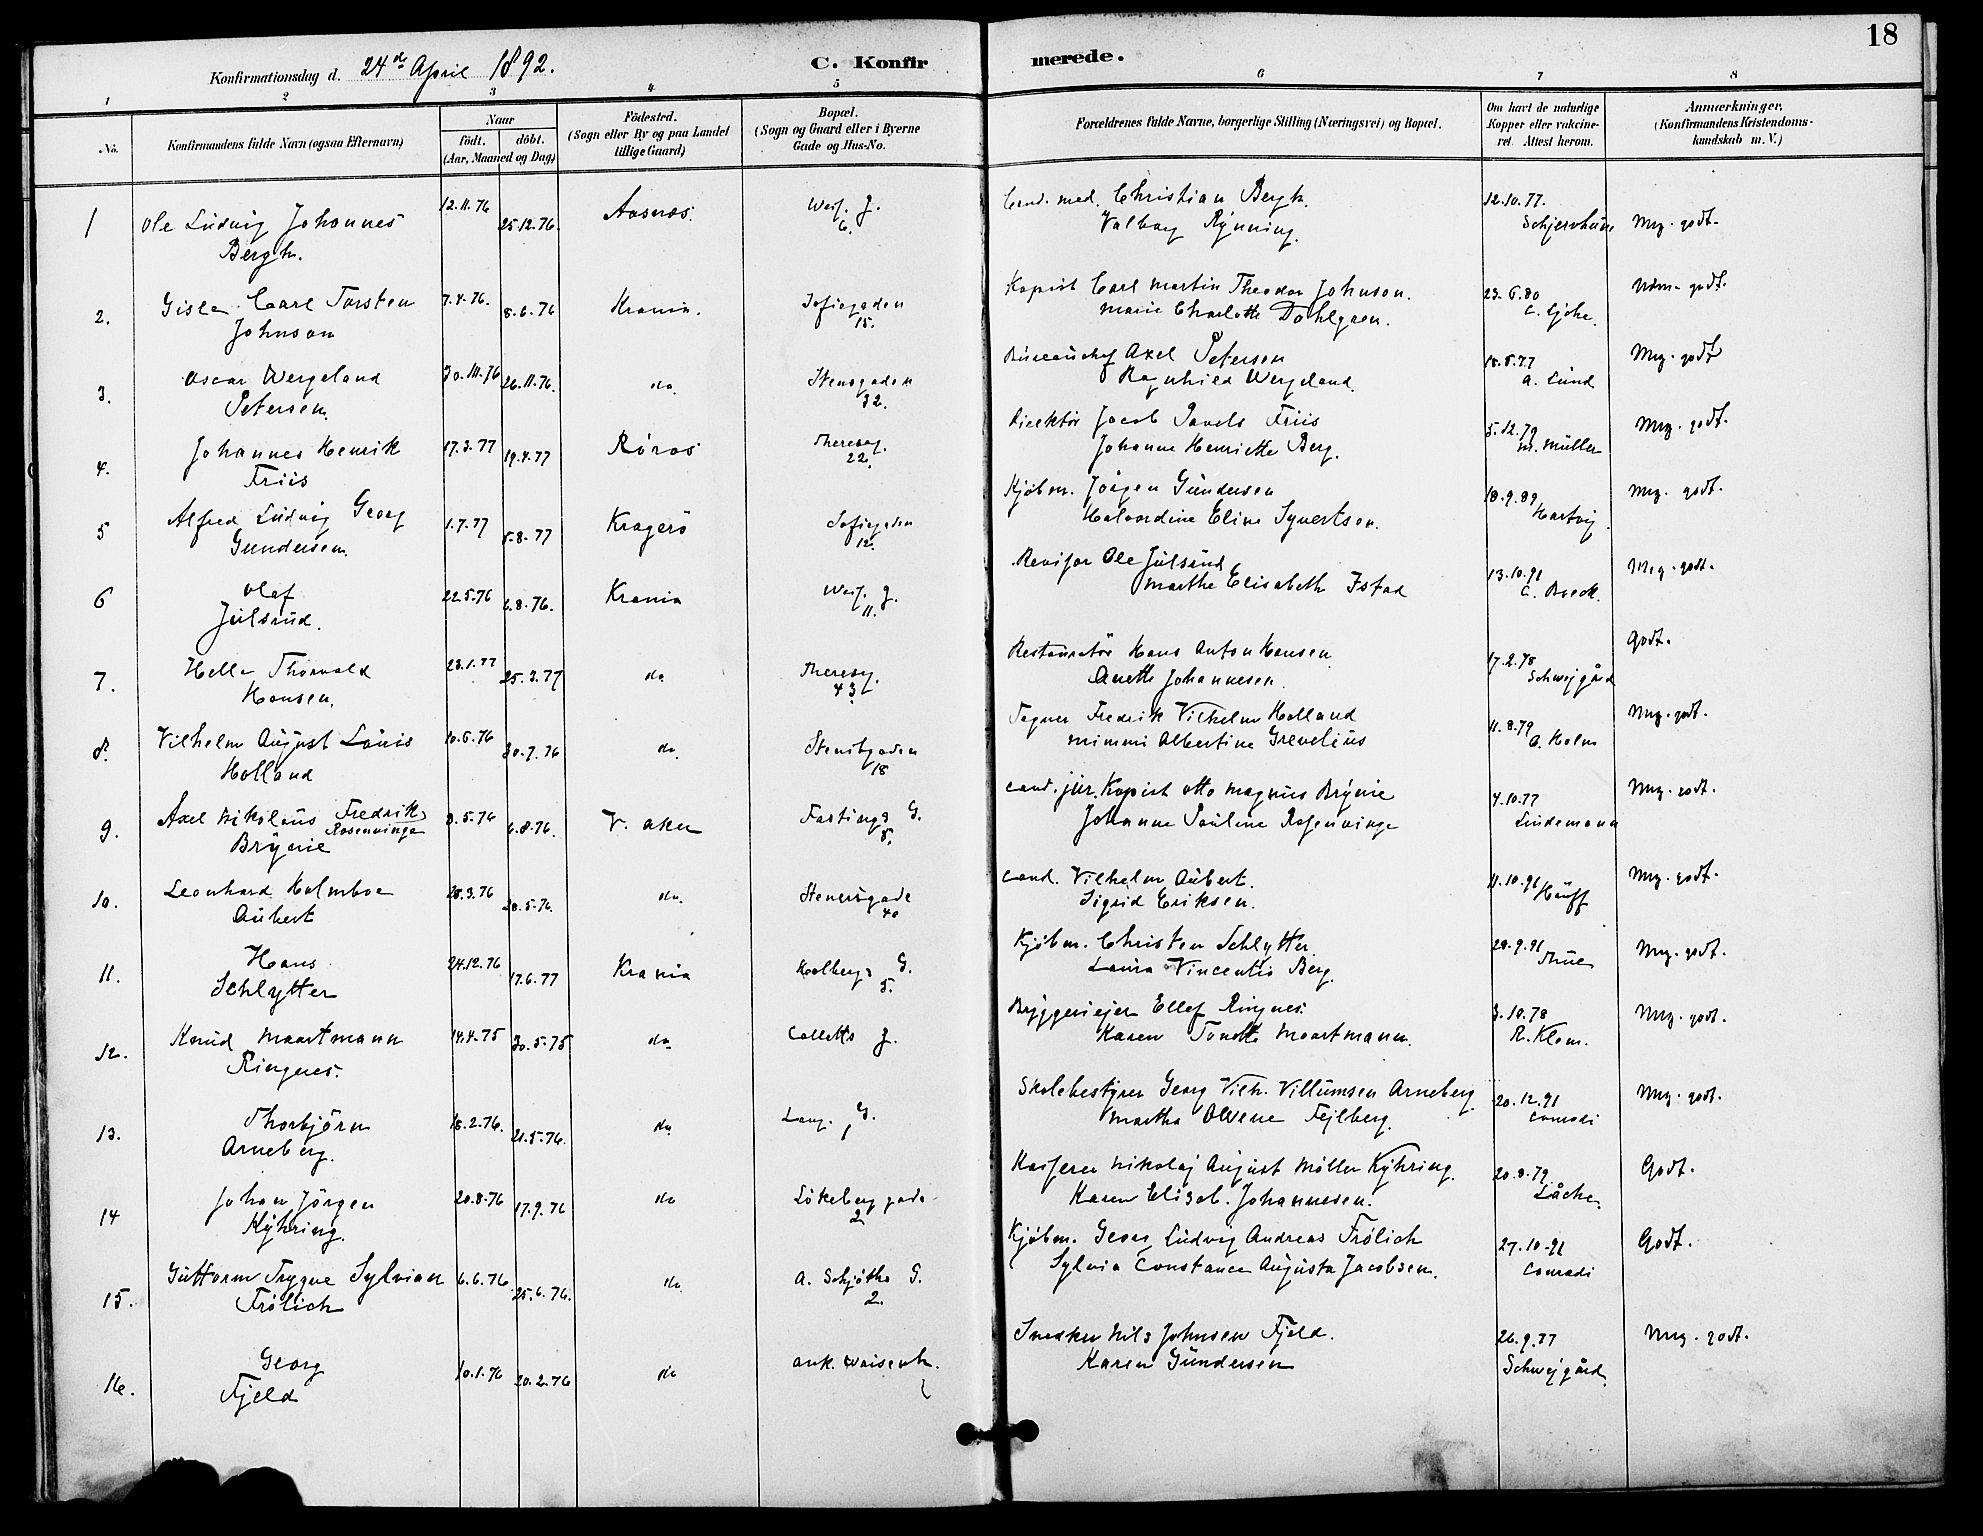 18
Konfirmationsdag d. 24de April 1892.
C. Konfirmerede.
1 2 3 4 5 6 7 8
No.
Konfirmandens fulde Navn (ogsaa Efternavn)
Naar
født. døbt.
(Aar, Maaned og Dag)
Fødested.
(Sogn eller By og paa Landet
tillige Gaard)
Bopæl.
(Sogn og Gaard eller i Byerne
Gade og Hus-No.
Forældrenes fulde Navne, borgerlige Stilling (Næringsvei) og Bopæl.
Om havt de naturlige
Kopper eller vakcine-
ret. Attest herom.
Anmærkninger.
(Konfirmandens Kristendoms-
kundskab m. V.)
1 Ole Ludvig Johannes 12.11.76 25.12.76. Aasnæs. Wesf. g. Cand. med. Christian Bergh. 12.10.77. Mrg. godt.
Bergh. 6. Valborg Rynning.
2. Gisle Carl Torsten 7.4.76. 8.6.76 Krania. Sofiegaden Kopist Carl Martin Theodor Johnson. 23.6.80 godt.
Johnson 15. Marie Charlotte Dahlgren.
3. Oscar Wergeland 30.III.76 26.11.76. do. Stensgaden Bureauchef Axel Petersen 18.5.77 Mrg. godt
Petersen. 32. Ragnhild Wergeland. A. Lund
4. Johannes Henrik 17.3.77 19.4.77 Røros Thereseg. Direktør Jacob Pavels Friis 5.12.79 Mrg. godt.
Friis 22. Johanne Henriette Berg. M. Müller
5 Alfred Ludvig Georg 1.7.77 5.8.77 Kragerö Sofiegaden Kjøbm. Jörgen Gundersen 18.9.89 Mrg. godt.
Gundersen. 12. Eline Syvertsen. Hartvig
6 Olaf 22.5.76 6.8.76. Krania Wesf. g. Revisor Ole Julsrud 13.10.91 Mrg. godt.
Julsrud. 11. Marthe Elisabeth Istad C. Boeck.
7. Helle Thorvald 23.1.77 25.3.77 do Theresg. Restauratör Hans Anton Hansen 17.2.78 Godt.
Hansen. 43 Anette Johannesen. Schweigård
8. Vilhelm August Louis 10.6.76 30.7.76 do. Stensgaden Tegner Fredrik Vilhelm Holland 11.8.79 Mrg. godt.
Holland 18 Mimmi Albertine Grevelius Holm
9. Axel Nikolaus Fredrik 3.5.76 6.8.76. V. Aker Fastings G. cand. jur. Kopist Otto Magnus Brynie 4.10.77 Mrg. godt.
Rosenvinge
Brynie 8. Johanne Pauline Rosenvinge Lindemann
10. Leonhard Holmboe 28.3.76 28.5.76. do. Stensgade cand. Vilhelm Aubert. 11.10.91 Mrg. godt.
Aubert 40 Sigrid Eriksen. Hauff
11. Hans 24.12.76 17.6.77 Krania Holbergs G. Kjøbm. Christen Schlytter 28.9.91 Mrg. godt.
Schlytter 5. Laura Vincentia Berg. Thue
12. Knud Maartmann 14.4.75 30.5.75 do Colletts g. Bryggeriejer Ellef Ringnes. 3.10.78 Mrg. godt.
Ringnes. Karen Tonette Maartmann. R. Klem.
13. Thorbjörn 18.2.76. 21.5.76. do Lang. G. Skolebestyrer Georg Vilh. Villumsen Arneberg 20.12.91 Mrg. godt.
Arneberg. 1 Martha Olvene Fejlberg. Conradi
14 Johan Jörgen 20.8.76 17.9.76 do Lökeberg gade Kasserer Nikolaj August Møller Kyhring. 20.8.79. Godt.
Kyhring. 2 Karen Elisab. Johannesen.
15. Guttorm Trygve Sylvian 6.6.76. 25.6.76. do A. Schjøths G. Kjøbm. Georg Ludvig Andreas Frölich 27.10.91 Godt.
Frölich 2. Sylvia Constance Augusta Jacobsen. Conradi
16. Georg 10.1.76 20.2.76 do Ank. Waisenh. Snedker Nils Johnsen Fjeld. 26.9.77 Mrg. godt.
Fjeld Karen Gundersen Schweigård.